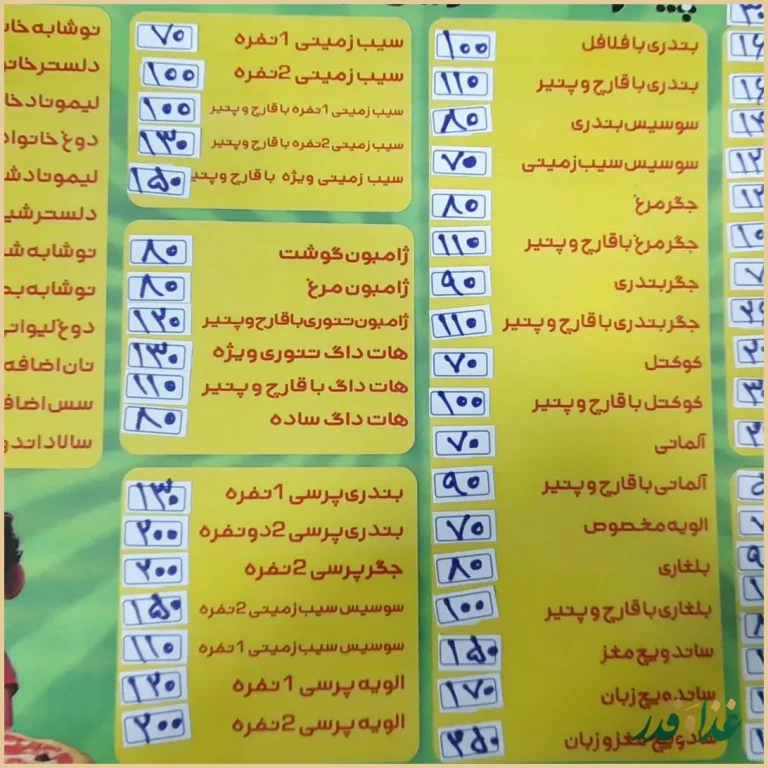 بندری با فلافل ۱۰۰
بندری با قارچ و پنیر ۱۱۰
سوسیس بندری ۸۰
سوسیس سیب زمینی ۷۰
جگر مرغ ۸۰
جگر مرغ با قارچ و پنیر ۱۱۰
جگر بندری ۹۰
جگر بندری با قارچ و پنیر ۱۱۰
کوکتل ۷۰
کوکتل با قارچ و پنیر ۱۰۰
آلمانی ۷۰
آلمانی با قارچ و پنیر ۹۰
الویه مخصوص ۷۰
بلغاری ۸۰
بلغاری با قارچ و پنیر ۱۰۰
ساندویچ مغز ۱۵۰
ساندویچ زبان ۱۷۰
مغز و زبان ۲۵۰
سیب زمینی 1 نفره ۷۰
سیب زمینی 2 نفره ۱۰۰
سیب زمینی 1 نفره با قارچ و پنیر ۱۰۰
سیب زمینی 2 نفره با قارچ و پنیر ۱۳۰
سیب زمینی ویژه با قارچ و پنیر ۱۵۰
ژامبون گوشت ۸۰
ژامبون مرغ ۸۰
ژامبون تنوری با قارچ و پنیر ۱۲۰
هات داگ تنوری ویژه ۱۳۰
هات داگ با قارچ و پنیر ۱۱۰
هات داگ ساده ۸۰
بندری پرسی 1 نفره ۱۳۰
بندری پرسی 2 دو نفره ۲۰۰
جگر پرسی 2 نفره ۲۰۰
سوسیس سیب زمینی 2 نفره ۱۵۰
سوسیس سیب زمینی 1 نفره ۱۱۰
الویه پرسی 1 نفره ۱۲۰
الویه پرسی 2 نفره ۲۰۰
نوشابه
دلستر
لیموناد
دوغ
لیموناد
دلستر
نوشابه
نوشابه
دوغ
نان اضافه
سس
سالاد
غذا و قدر